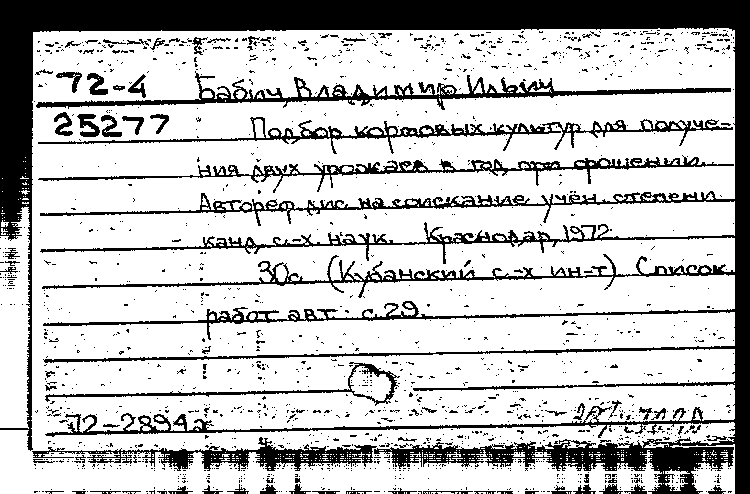 72-4 Бабич, Владимир Ильич
25277 Подбор кормовых культур для получе-
ния двух урожаев в год при орошении.
Автореф. дис. на соискание учён. степени
канд. с.-х. наук. Краснодар, 1972.
30с. (Кубанский с.-х ин-т). Список
работ авт.: с.29.
72-2894а